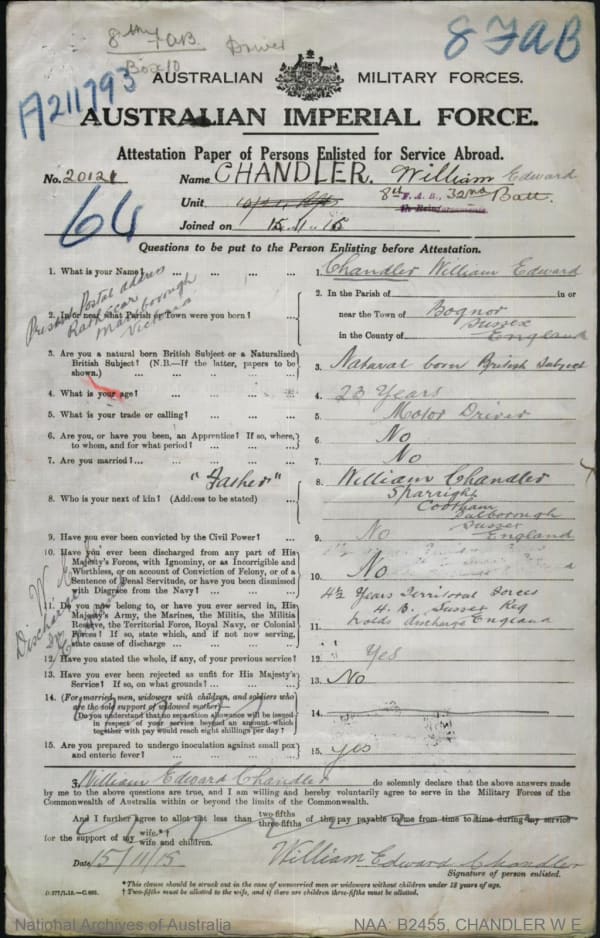 8th FAB. Driver
Box 10
8 FAB
A211793
AUSTRALIAN MILITARY FORCES.
AUSTRALIAN IMPERIAL FORCE.
Attestation Paper of Persons Enlisted for Service Abroad.
No. 20121 Name CHANDLER. William Edward
Unit 8th F.A.B., 32nd Batt.
Joined on 15.11.15
64
Questions to be put to the Person Enlisting before Attestation.
1. What is your Name? ... ... ... ... 1. Chandler William Edward
Present Postal address
Rathscar
Maryborough
Victoria
2. In or near what Parish or Town were you born? ... 2. In the Parish of in or
near the Town of Bognor
Sussex
in the County of England
3. Are you a natural born British Subject or a Naturalized British Subject? (N.B.—If the latter, papers to be shown.) ... 3. Natural born British Subject
4. What is your age? ... ... ... ... 4. 23 Years
5. What is your trade or calling? ... ... ... 5. Motor Driver
6. Are you, or have you been, an Apprentice? If so, where, to whom, and for what period? ... ... 6. No
7. Are you married? ... ... ... ... 7. No
"Father"
8. Who is your next of kin? (Address to be stated) ... 8. William Chandler
Sparright
Cootham
Pulborough
Sussex
England
9. Have you ever been convicted by the Civil Power? ... 9. No
10. Have you ever been discharged from any part of His
Majesty's Forces, with Ignominy, or as Incorrigible and
Worthless, or on account of Conviction of Felony, or of a
Sentence of Penal Servitude, or have you been dismissed
with Disgrace from the Navy? ... ... 10. No
11. Do you now belong to, or have you ever served in, His
Majesty's Army, the Marines, the Militia, the Militia
Reserve, the Territorial Force, Royal Navy, or Colonial
Forces? If so, state which, and if not now serving,
state cause of discharge ... ... 11. 4½ Years Territorial Forces
H.B. Sussex Reg
holds discharge England
Discharge
12. Have you stated the whole, if any, of your previous service? 12. Yes
13. Have you ever been rejected as unfit for His Majesty's
Service? If so, on what grounds? ... ... 13. No
14. (For married men, widowers with children, and soldiers who
are the sole support of widowed mother)—
(Do you understand that no separation allowance will be issued
in respect of your service beyond an amount which
together with pay would reach eight shillings per day? 14.
15. Are you prepared to undergo inoculation against small pox
and enteric fever? ... ... ... 15. yes
I, William Edward Chandler do solemnly declare that the above answers made
by me to the above questions are true, and I am willing and hereby voluntarily agree to serve in the Military Forces of the
Commonwealth of Australia within or beyond the limits of the Commonwealth.
And I further agree to allot not less than two-fifths three-fifths of the pay payable to me from time to time during my service
for the support of my wife.*† wife and children.
Date 15/11/15 William Edward Chandler
Signature of person enlisted.
*This clause should be struck out in the case of unmarried men or widowers without children under 18 years of age.
† Two-fifths must be allotted to the wife, and if there are children three-fifths must be allotted.
National Archives of Australia NAA: B2455, CHANDLER W E